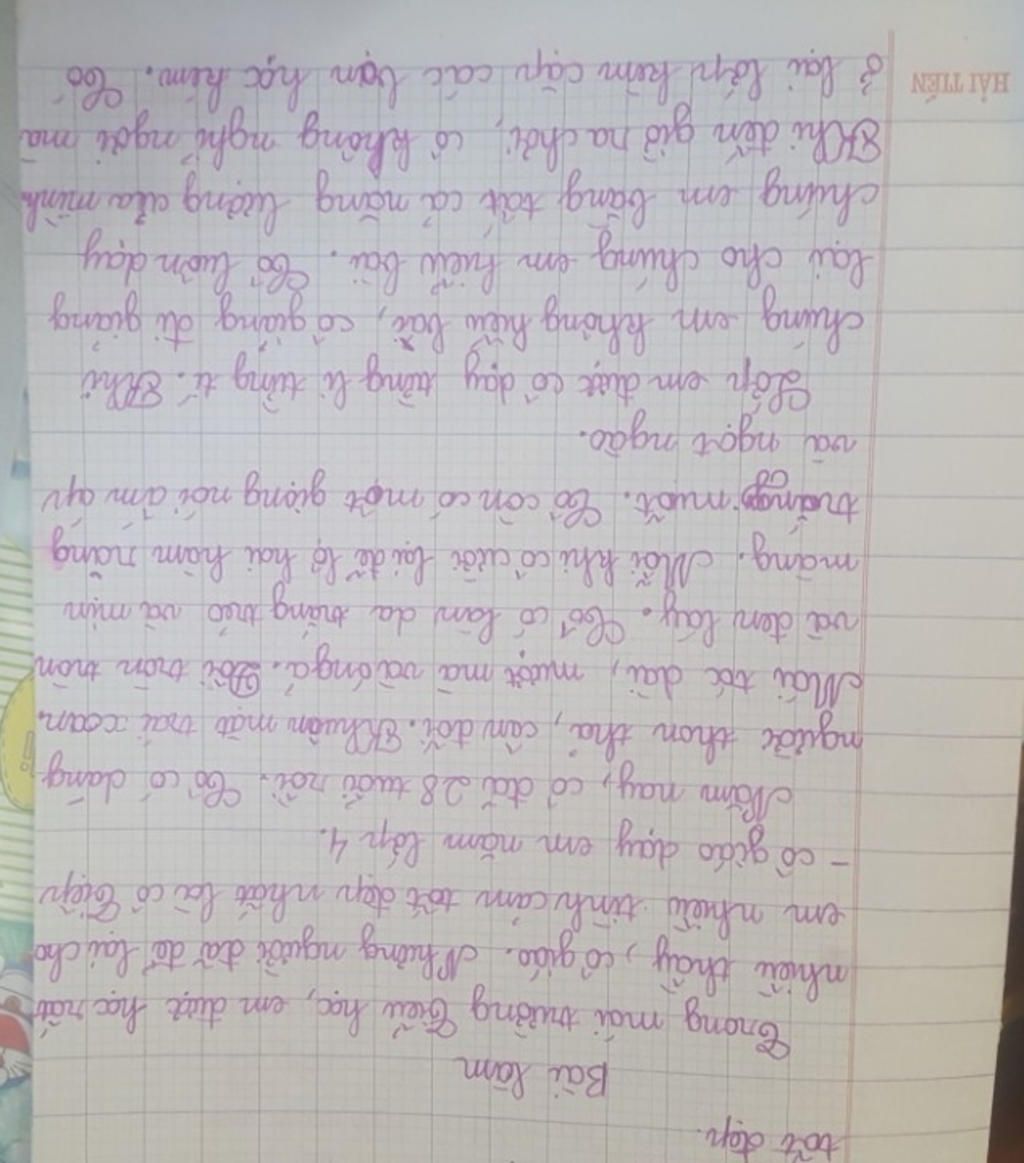 tốt đẹp.
Bài làm
Trong mái trường Tiểu học, em được học rất
nhiều thầy, cô giáo. Nhưng người đã để lại cho
em nhiều tình cảm tốt đẹp nhất là cô Tiệp
- cô giáo dạy em năm lớp 4.
Năm nay, cô đã 28 tuổi rồi. Cô có dáng
người thon thả, cân đối. Khuôn mặt trái xoan.
Mái tóc dài, mượt mà và óng ả. Đôi tròn tròn
và đen láy. Cô có làn da trắng trẻo và mịn
màng. Mỗi khi cô cười lại để lộ hai hàm răng
trắng muốt. Cô còn có một giọng nói ấm áp
và ngọt ngào.
Lớp em được cô dạy từng li từng tí. Khi
chúng em không hiểu bài, cô giảng đi giảng
lại cho chúng em hiểu bài. Cô luôn dạy
chúng em bằng tất cả năng lượng của mình
Khi đến giờ ra chơi, cô không nghỉ ngơi mà
ở lại lớp kèm cặp các bạn học kém. Có
HẢI TIẾN